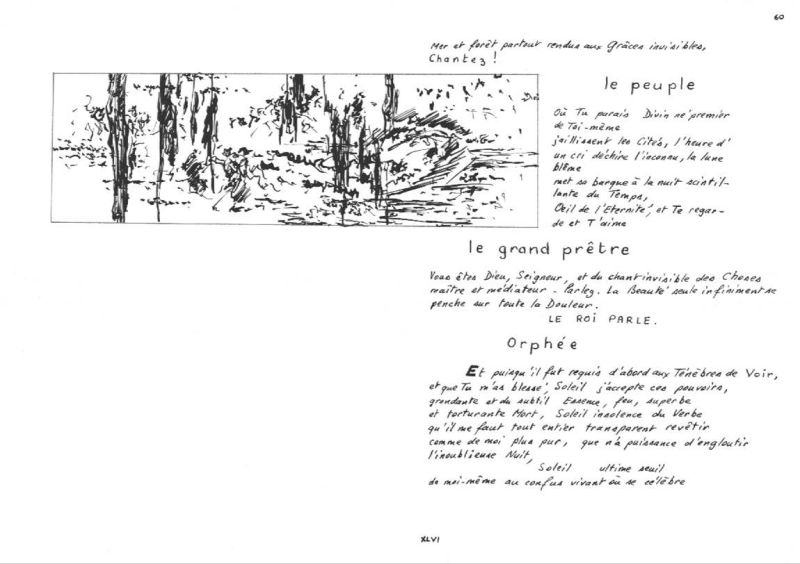 60
Mer et forêt partout rendus aux Grâces invisibles,
Chantez !
le peuple
Où Tu parais Divin né premier
de Toi-même
jaillissent les Cités, l'heure d'
un cri déchire l'inconnu, la lune
blême
met sa barque à la nuit scintil-
lante du Temps,
Oeil de l'Eternité, et Te regar-
de et T'aime
le grand prêtre
Vous êtes Dieu, Seigneur, et du chant invisible des Choses
maître et médiateur - Parlez. La Beauté seule infiniment se
penche sur toute la Douleur.
LE ROI PARLE.
Orphée
Et puisqu'il fut requis d'abord aux Ténèbres de Voir,
et que Tu m'as blessé, Soleil j'accepte ces pouvoirs,
grondante et du subtil Essence, feu, superbe
et torturante Mort, Soleil insolence du Verbe
qu'il me faut tout entier transparent revêtir
comme de moi plus pur, que n'a puissance d'engloutir
l'inoublieuse Nuit,
Soleil ultime seuil
de moi-même au confus vivant où se célèbre
XLVI